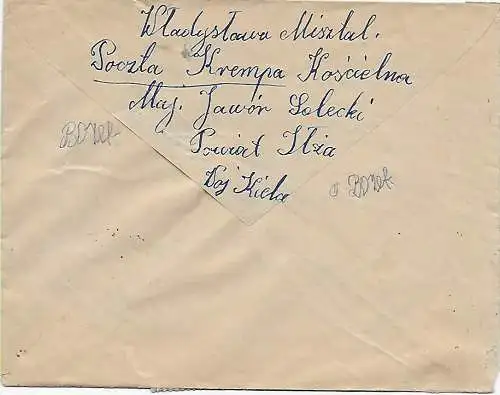 Władysława Misztal.
Poczta Krempa Kościelna
Maj. Jawór Solecki
Powiat Iłża
Woj Kiela